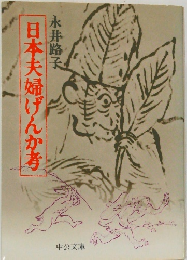 永井路子
日本夫婦げんか考
中公文庫